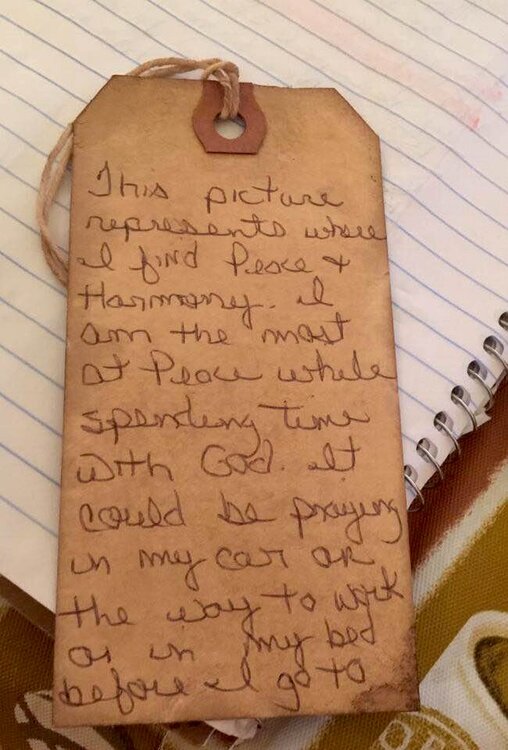 This picture
represents where
I find Peace &
Harmony. I
am the most
at Peace while
spending time
with God. It
could be praying
in my car on
the way to work
or in my bed
before I go to